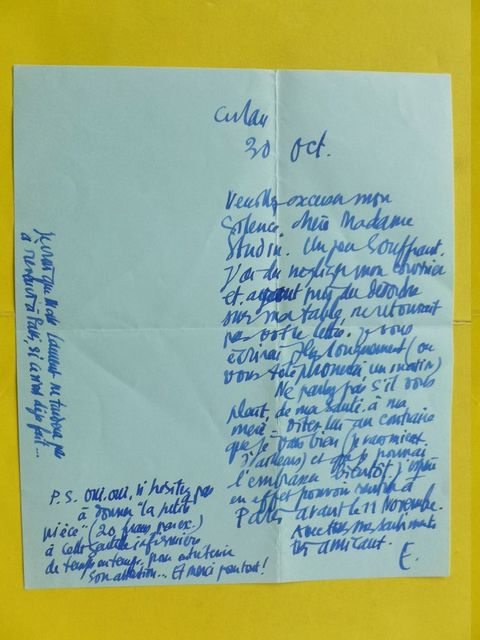 Culan
30 oct.
Veuillez excuser mon
silence, chère Madame
Studin. Un peu souffrant,
j'ai du negliger mon courrier
et ayant pris du désordre
sur ma table, ne retrouvait
pas votre lettre. Je vous
écrirai plus longuement (ou
vous téléphonerai, un matin)
Ne parlez pas s'il vous
plait, de ma santé, à ma
mère. Dites lui au contraire
que je vais bien (je vais mieux
d'ailleurs) et que je pourrai
l'embrasser bientôt, j'espère
en effet pouvoir rentrer à
Paris avant le 11 Novembre.
Avec tous mes sentiments
très amicaux.
E.
P.S. Oui, oui, n'hésitez pas
à donner "la petite
pièce" (20 francs par ex.)
à cette gentille infirmière
de temps en temps, pour entretenir
son attention... Et merci pour tout!
Je crois que Mme Laurent ne tardera pas
à revenir à Paris, si ce n'est déjà fait...